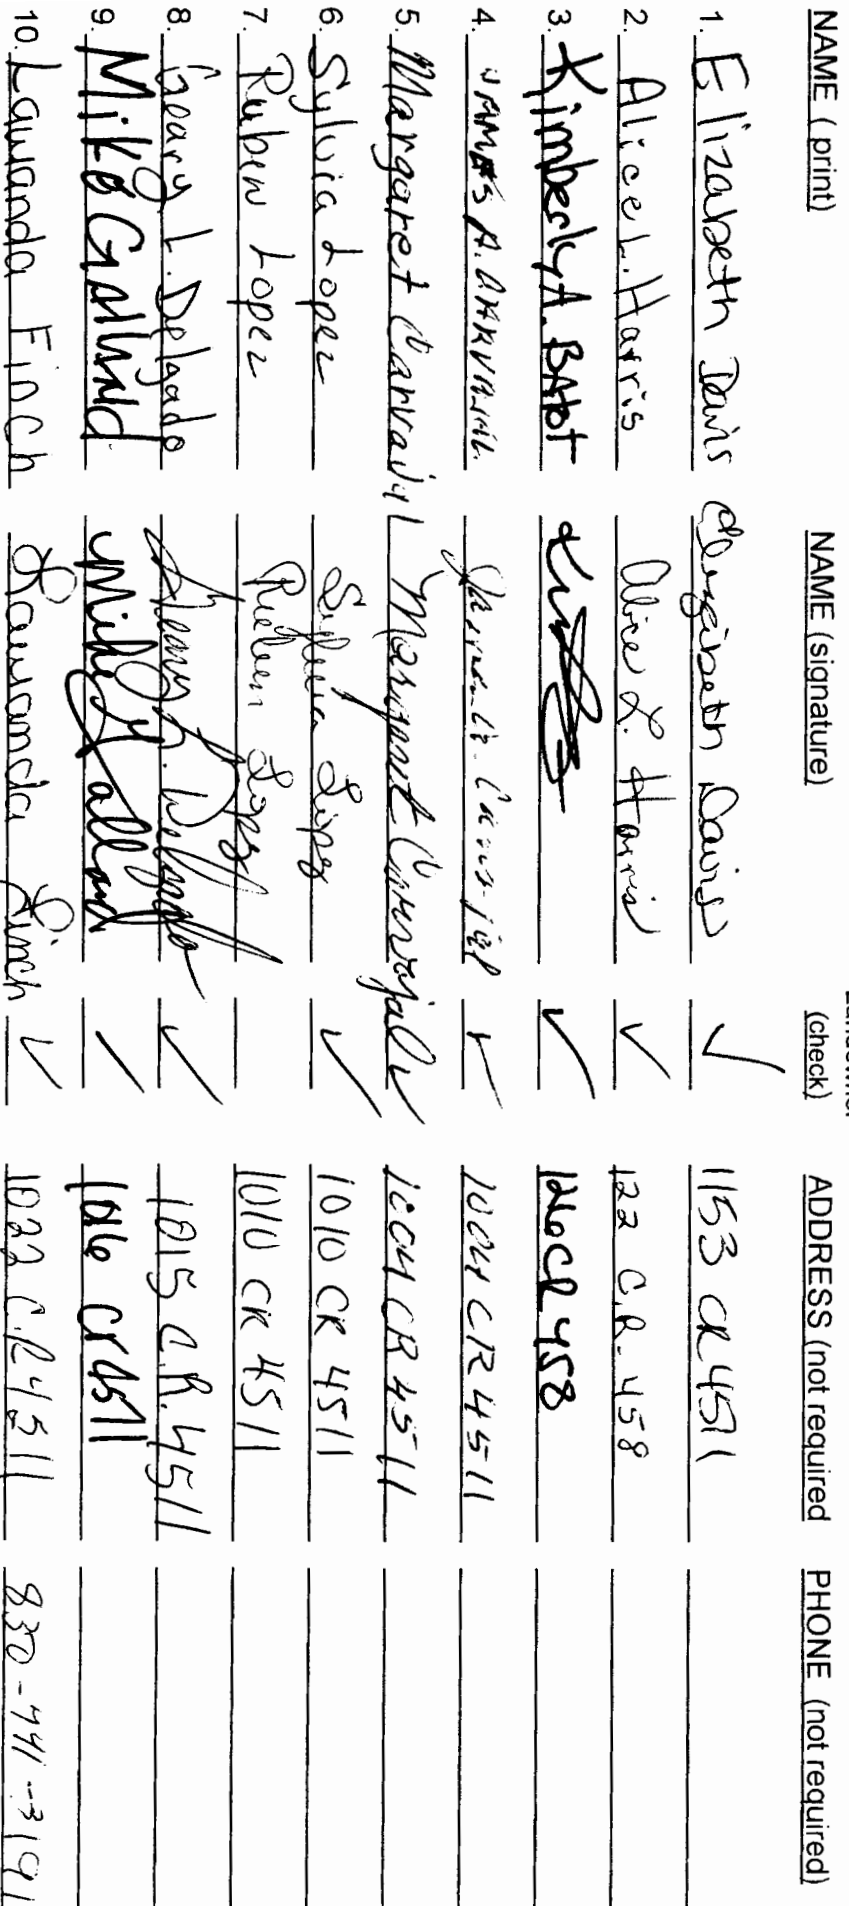 NAME (print) NAME (signature) (check) ADDRESS (not required PHONE (not required)
1. Elizabeth Davis Elizabeth Davis ✓ 1153 CR 4511
2. Alice L. Harris Alice L. Harris ✓ 122 C.R. 458
3. Kimberly A. ✓ CR 458
4. JAMES A. ✓ 1004 CR 4511
5. Margaret Carvajal Margaret Carvajal ✓ 1004 CR 4511
6. Sylvia Lopez Sylvia Lopez ✓ 1010 CR 4511
7. Ruben Lopez Ruben Lopez 1010 CR 4511
8. Geary L. Delgado Geary L. Delgado ✓ 1015 C.R. 4511
9. Mike Mike ✓ 1016 cr 4511
10. Lawanda Finch Lawanda Finch ✓ 1022 C.R 4511 830-441-3191